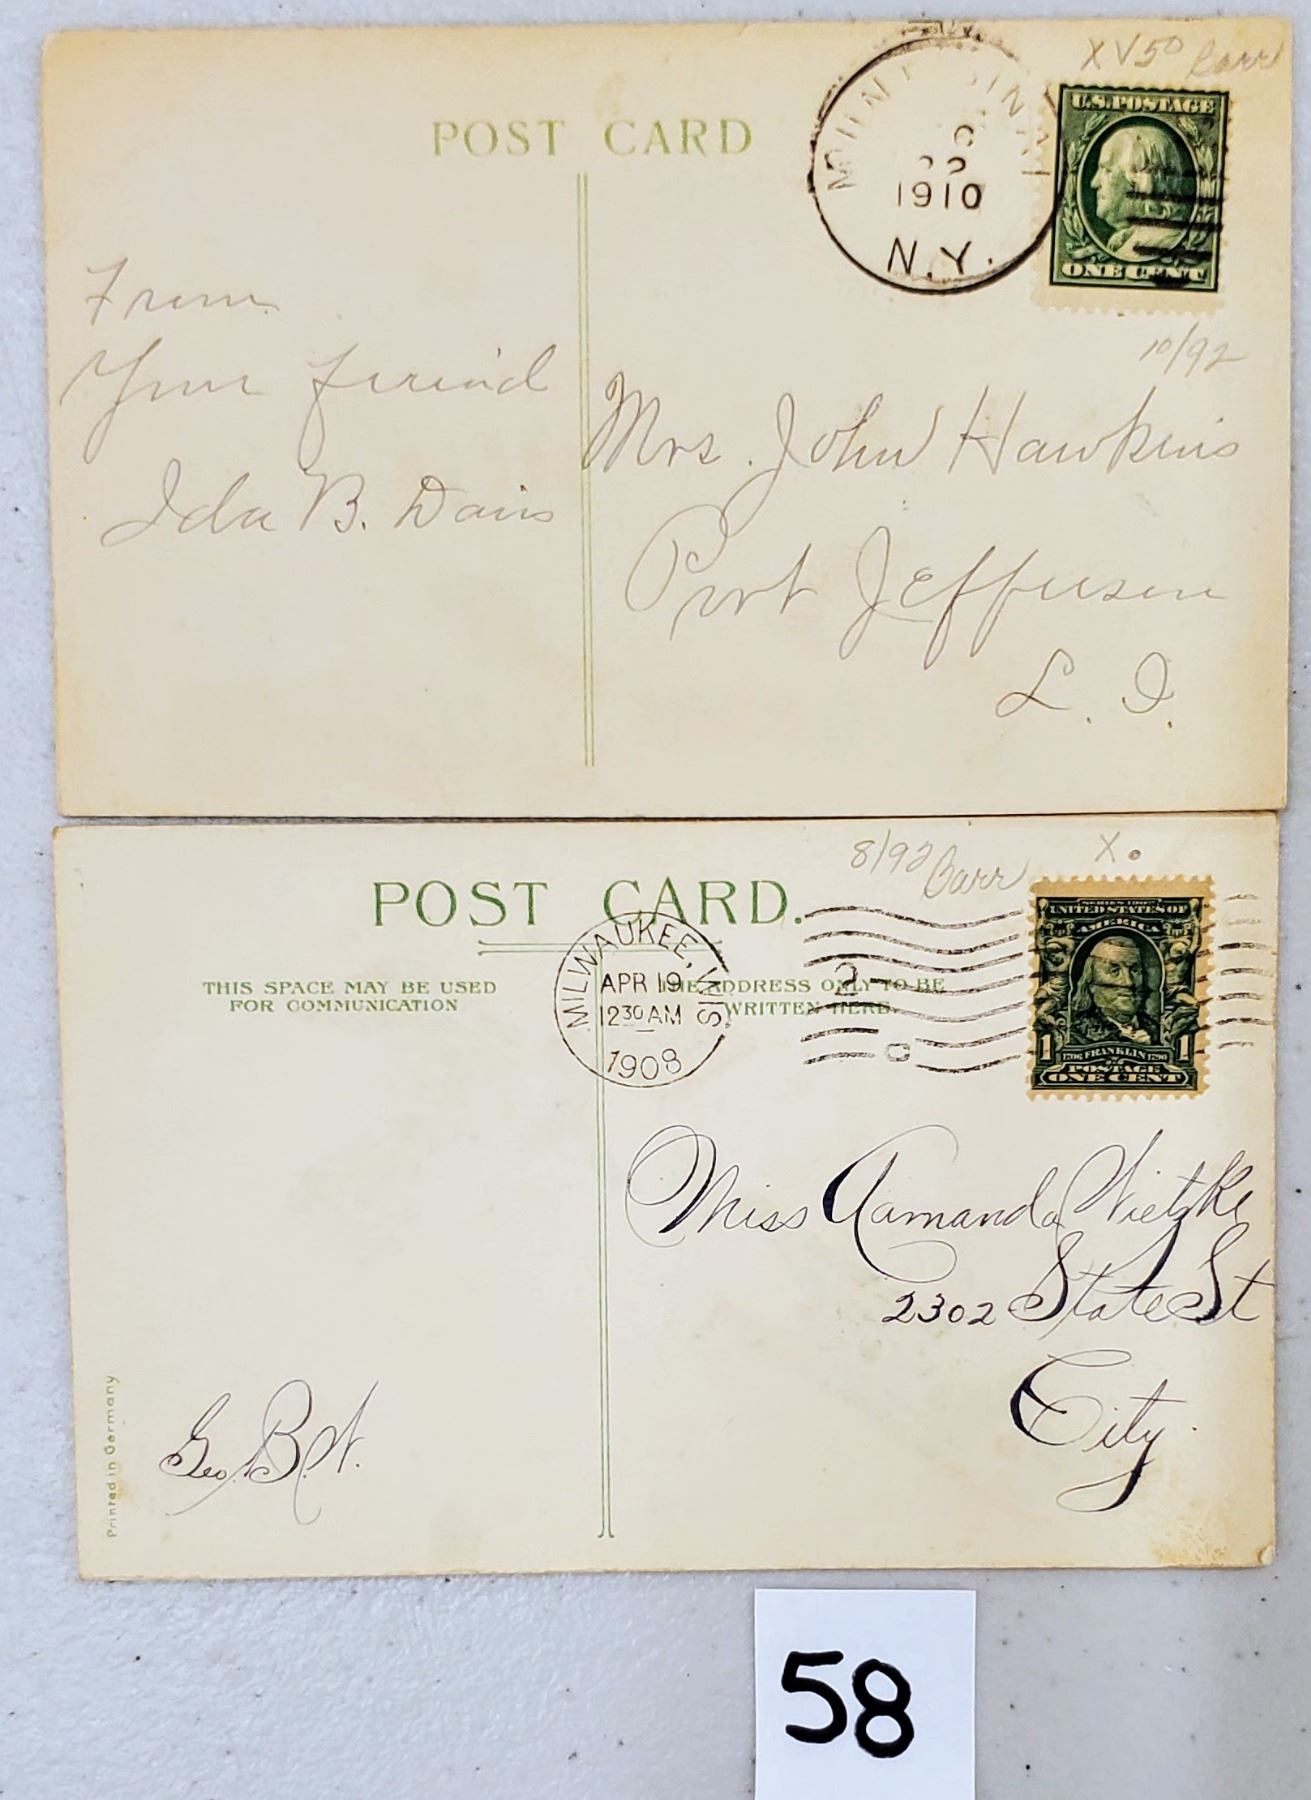 XV50 Barr
POST CARD
MOUNT SINAI
22
1910
N.Y.
U.S. POSTAGE
ONE CENT
From
Your friend
Ida B. Davis
10/92
Mrs. John Hawkins
Port Jefferson
L. I.
8/92 Barr X.
POST CARD.
THIS SPACE MAY BE USED
FOR COMMUNICATION
THE ADDRESS ONLY TO BE
WRITTEN HERE.
MILWAUKEE, WIS.
APR 19
12 30 AM
1908
2
SERIES 1902
UNITED STATES OF
AMERICA
1 1706 FRANKLIN 1790 1
POSTAGE
ONE CENT
Miss Amanda Wietzke
2302 State St
City.
Geo.
Printed in Germany
58